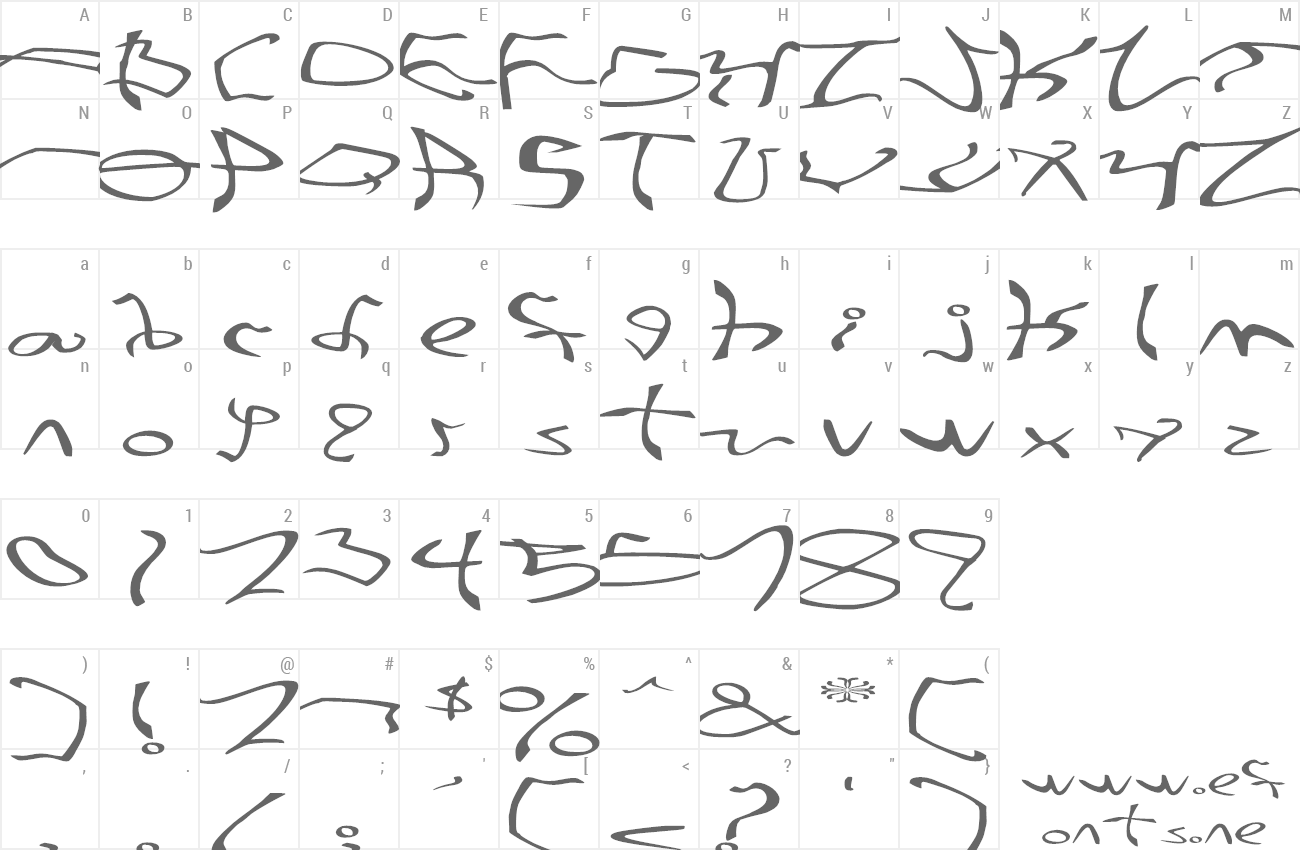 A B C D E F G H I J K L M
N O P Q R S T U V W X Y Z
a b c d e f g h i j k l m
n o p q r s t u v w x y z
0 1 2 3 4 5 6 7 8 9
) ! @ # $ % ^ & * (
, . / ; ' [ < ? " }
www.ef
onts.one